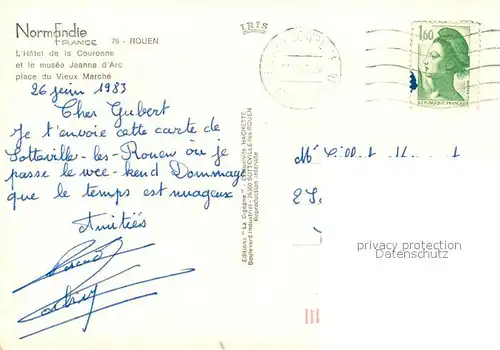 Normandie
FRANCE 76 - ROUEN
L'Hôtel de la Couronne
et le musée Jeanne d'Arc
place du Vieux Marché
IRIS
1,60
REPUBLIQUE FRANÇAISE
26 juin 1983
Cher Gubert
Je t'envoie cette carte de
Sotteville-les-Rouen où je
passe le wee-kend Dommage
que le temps est nuageux
Amitiés
Editions "La Cigogne" HACHETTE
Boulevard Industriel - 76300 SOTTEVILLE-lès-ROUEN
Reproduction interdite
privacy protection
Datenschutz